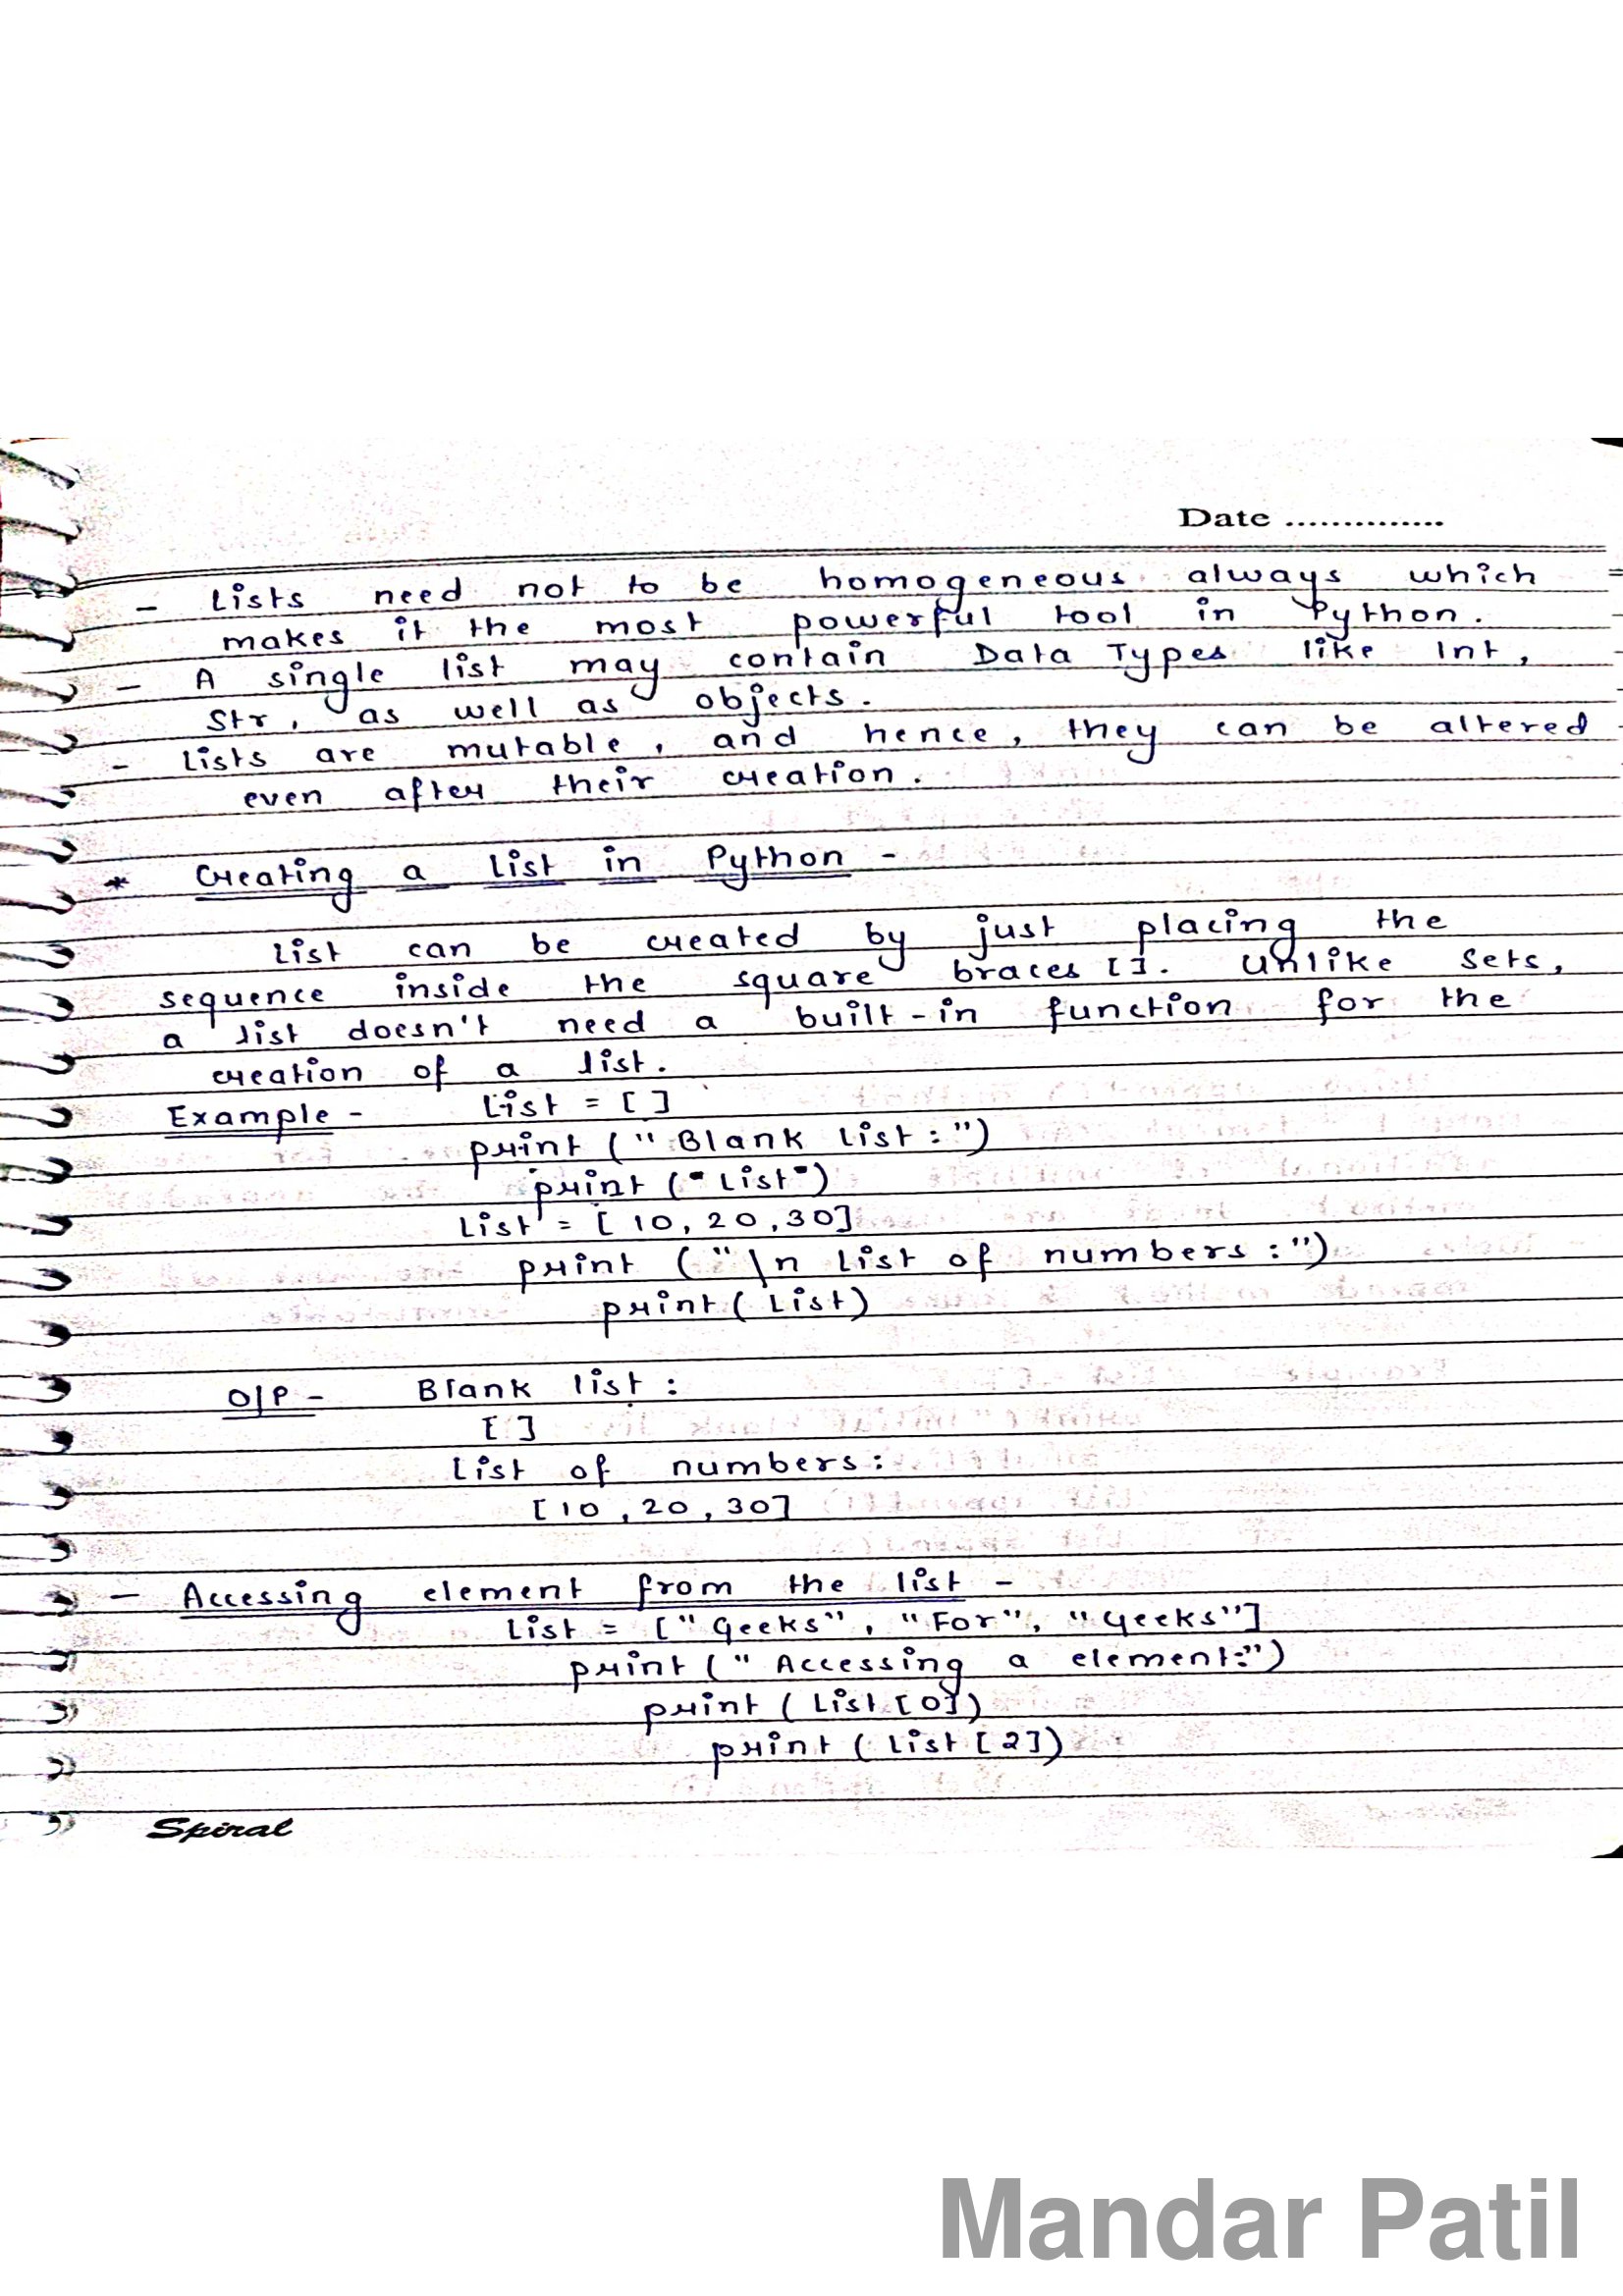 Date ..............
- Lists need not to be homogeneous always which
makes it the most powerful tool in Python.
- A single list may contain Data Types like Int,
Str, as well as objects.
- Lists are mutable, and hence, they can be altered
even after their creation.
* Creating a List in Python -
List can be created by just placing the
sequence inside the square braces []. Unlike Sets,
a list doesn't need a built-in function for the
creation of a list.
Example - List = [ ]
print (" Blank List :")
print ("List")
List = [ 10, 20, 30]
print ("\n List of numbers :")
print ( List)
O/P - Blank list :
[ ]
List of numbers :
[10, 20, 30]
- Accessing element from the list -
List = ["Geeks", "For", "Geeks"]
print (" Accessing a element:")
print ( List [0])
print ( List [2])
Spiral
Mandar Patil